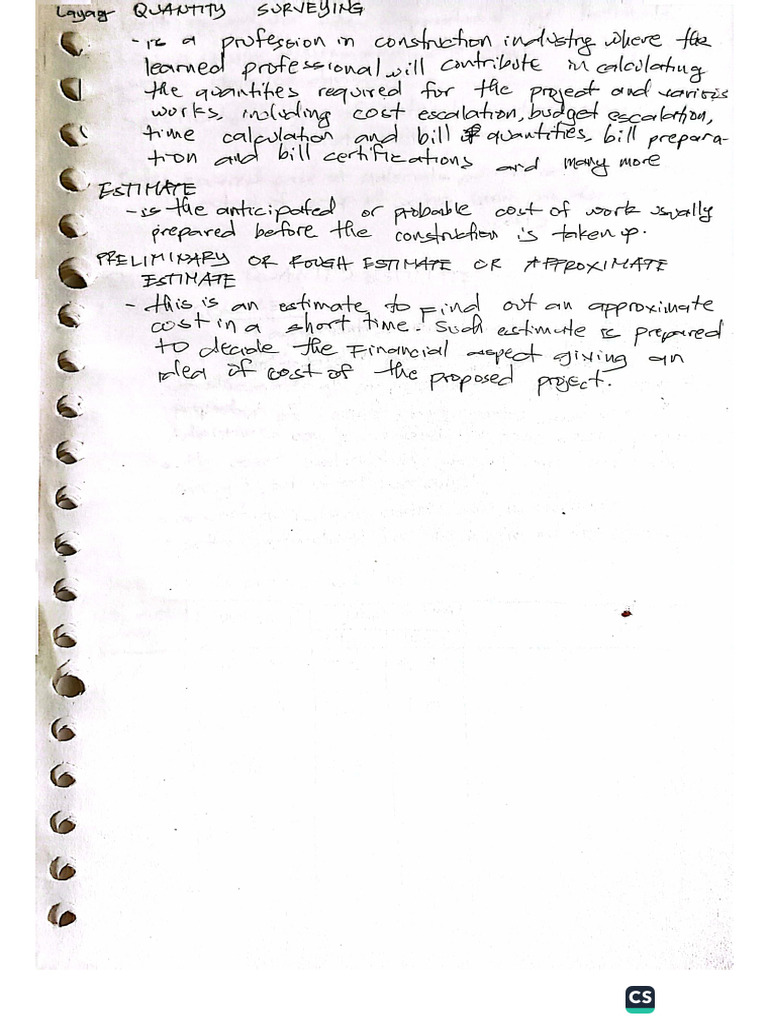 Layag QUANTITY SURVEYING
- is a profession in construction industry where the
learned professional will contribute in calculating
the quantites required for the project and various
works, including cost escalation, budget escalation,
time calculation and bill of quantities, bill prepara-
tion and bill certifications and many more
ESTIMATE
- is the anticipated or probable cost of work usually
prepared before the construction is taken up.
PRELIMINARY OR ROUGH ESTIMATE OR APPROXIMATE
ESTIMATE
- this is an estimate to find out an approximate
cost in a short time. Such estimate is prepared
to decide the Financial aspect giving an
idea of cost of the proposed project.
CS